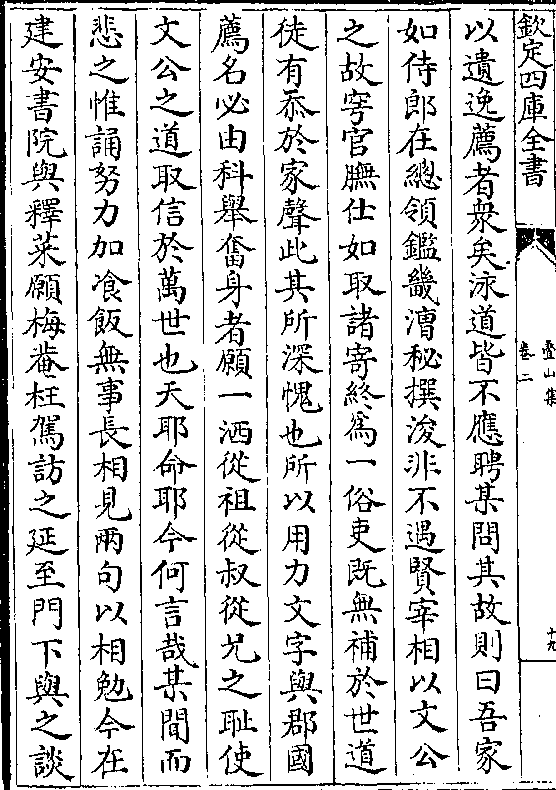 欽定四庫全書
疊山集
卷二
十九
以遺逸薦者衆矣泳道皆不應聘某問其故則曰吾家
如侍郎在總領鑑畿漕秘撰浚非不遇賢宰相以文公
之故穹官膴仕如取諸寄終為一俗吏既無補於世道
徒有忝於家聲此其所深愧也所以用力文字與郡國
薦名必由科舉奮身者願一洒從祖從叔從兄之恥使
文公之道取信於萬世也天耶命耶今何言哉某聞而
悲之惟誦努力加飡飯無事長相見兩句以相勉今在
建安書院與釋菜願梅菴枉駕訪之延至門下與之談